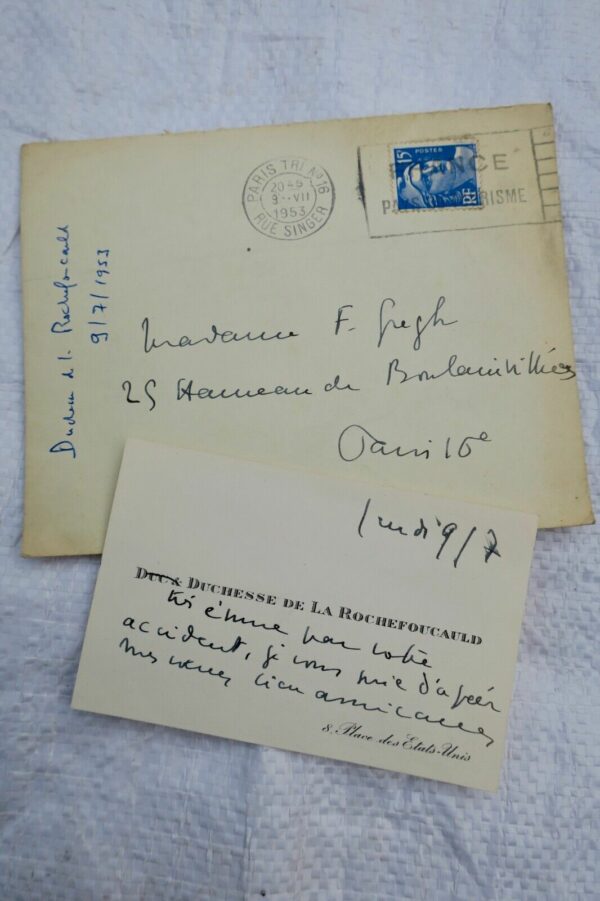 PARIS TRI Nº 16
20H45
9-VII
1953
RUE SINGER
15F
POSTES
RF
PARIS TOURISME
Duchesse de la Rochefoucauld
9/7/1953
Madame F. Gregh
25 Hameau de Boulainvilliers
Paris 16e
9/7
DUC & DUCHESSE DE LA ROCHEFOUCAULD
très émue par votre
accident, je vous prie d'agréer
mes voeux bien amicaux
8. Place des Etats-Unis